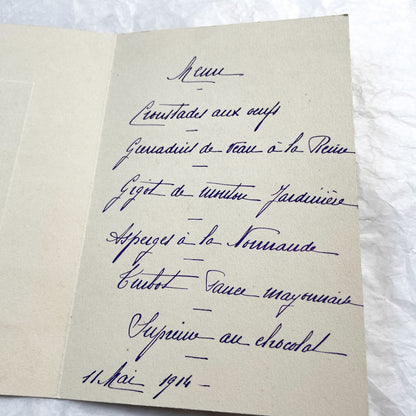 Menu
Croustades aux œufs
Grenadins de veau à la Reine
Gigot de mouton Jardinière
Asperges à la Normande
Turbot Sauce mayonnaise
Suprême au chocolat
11 Mai 1914 -